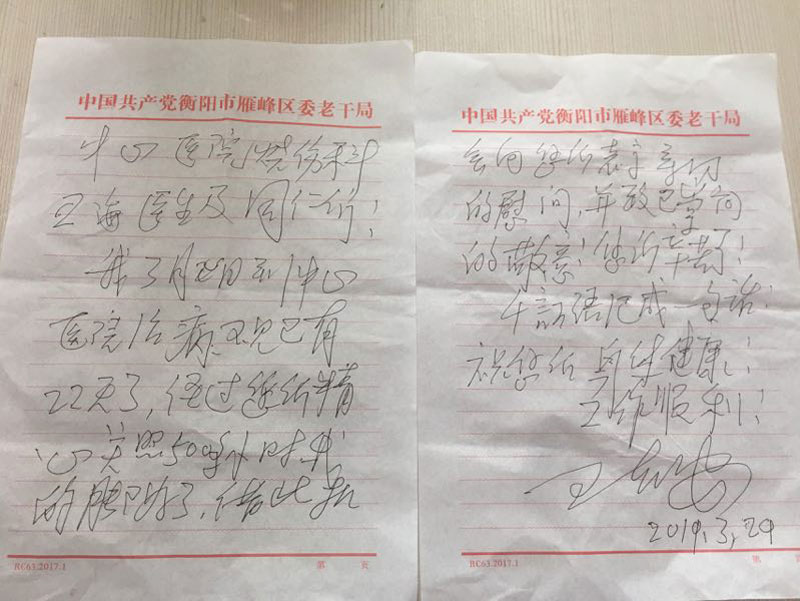 中国共产党衡阳市雁峰区委老干局
中心医院烧伤科
王海医生及同仁们！
我3月 日到中心
医院治病 现已有
22天了，经过您们精
心关照 时
的腿 好了，借此机
RC63.2017.1
第 页
中国共产党衡阳市雁峰区委老干局
会向您们表示亲切
的慰问，并致已崇高
的敬意！您们辛苦了！
千言语汇成一句话：
祝您们身体健康！
工作顺利！
王
2019.3,29
RC63.2017.1
第 页